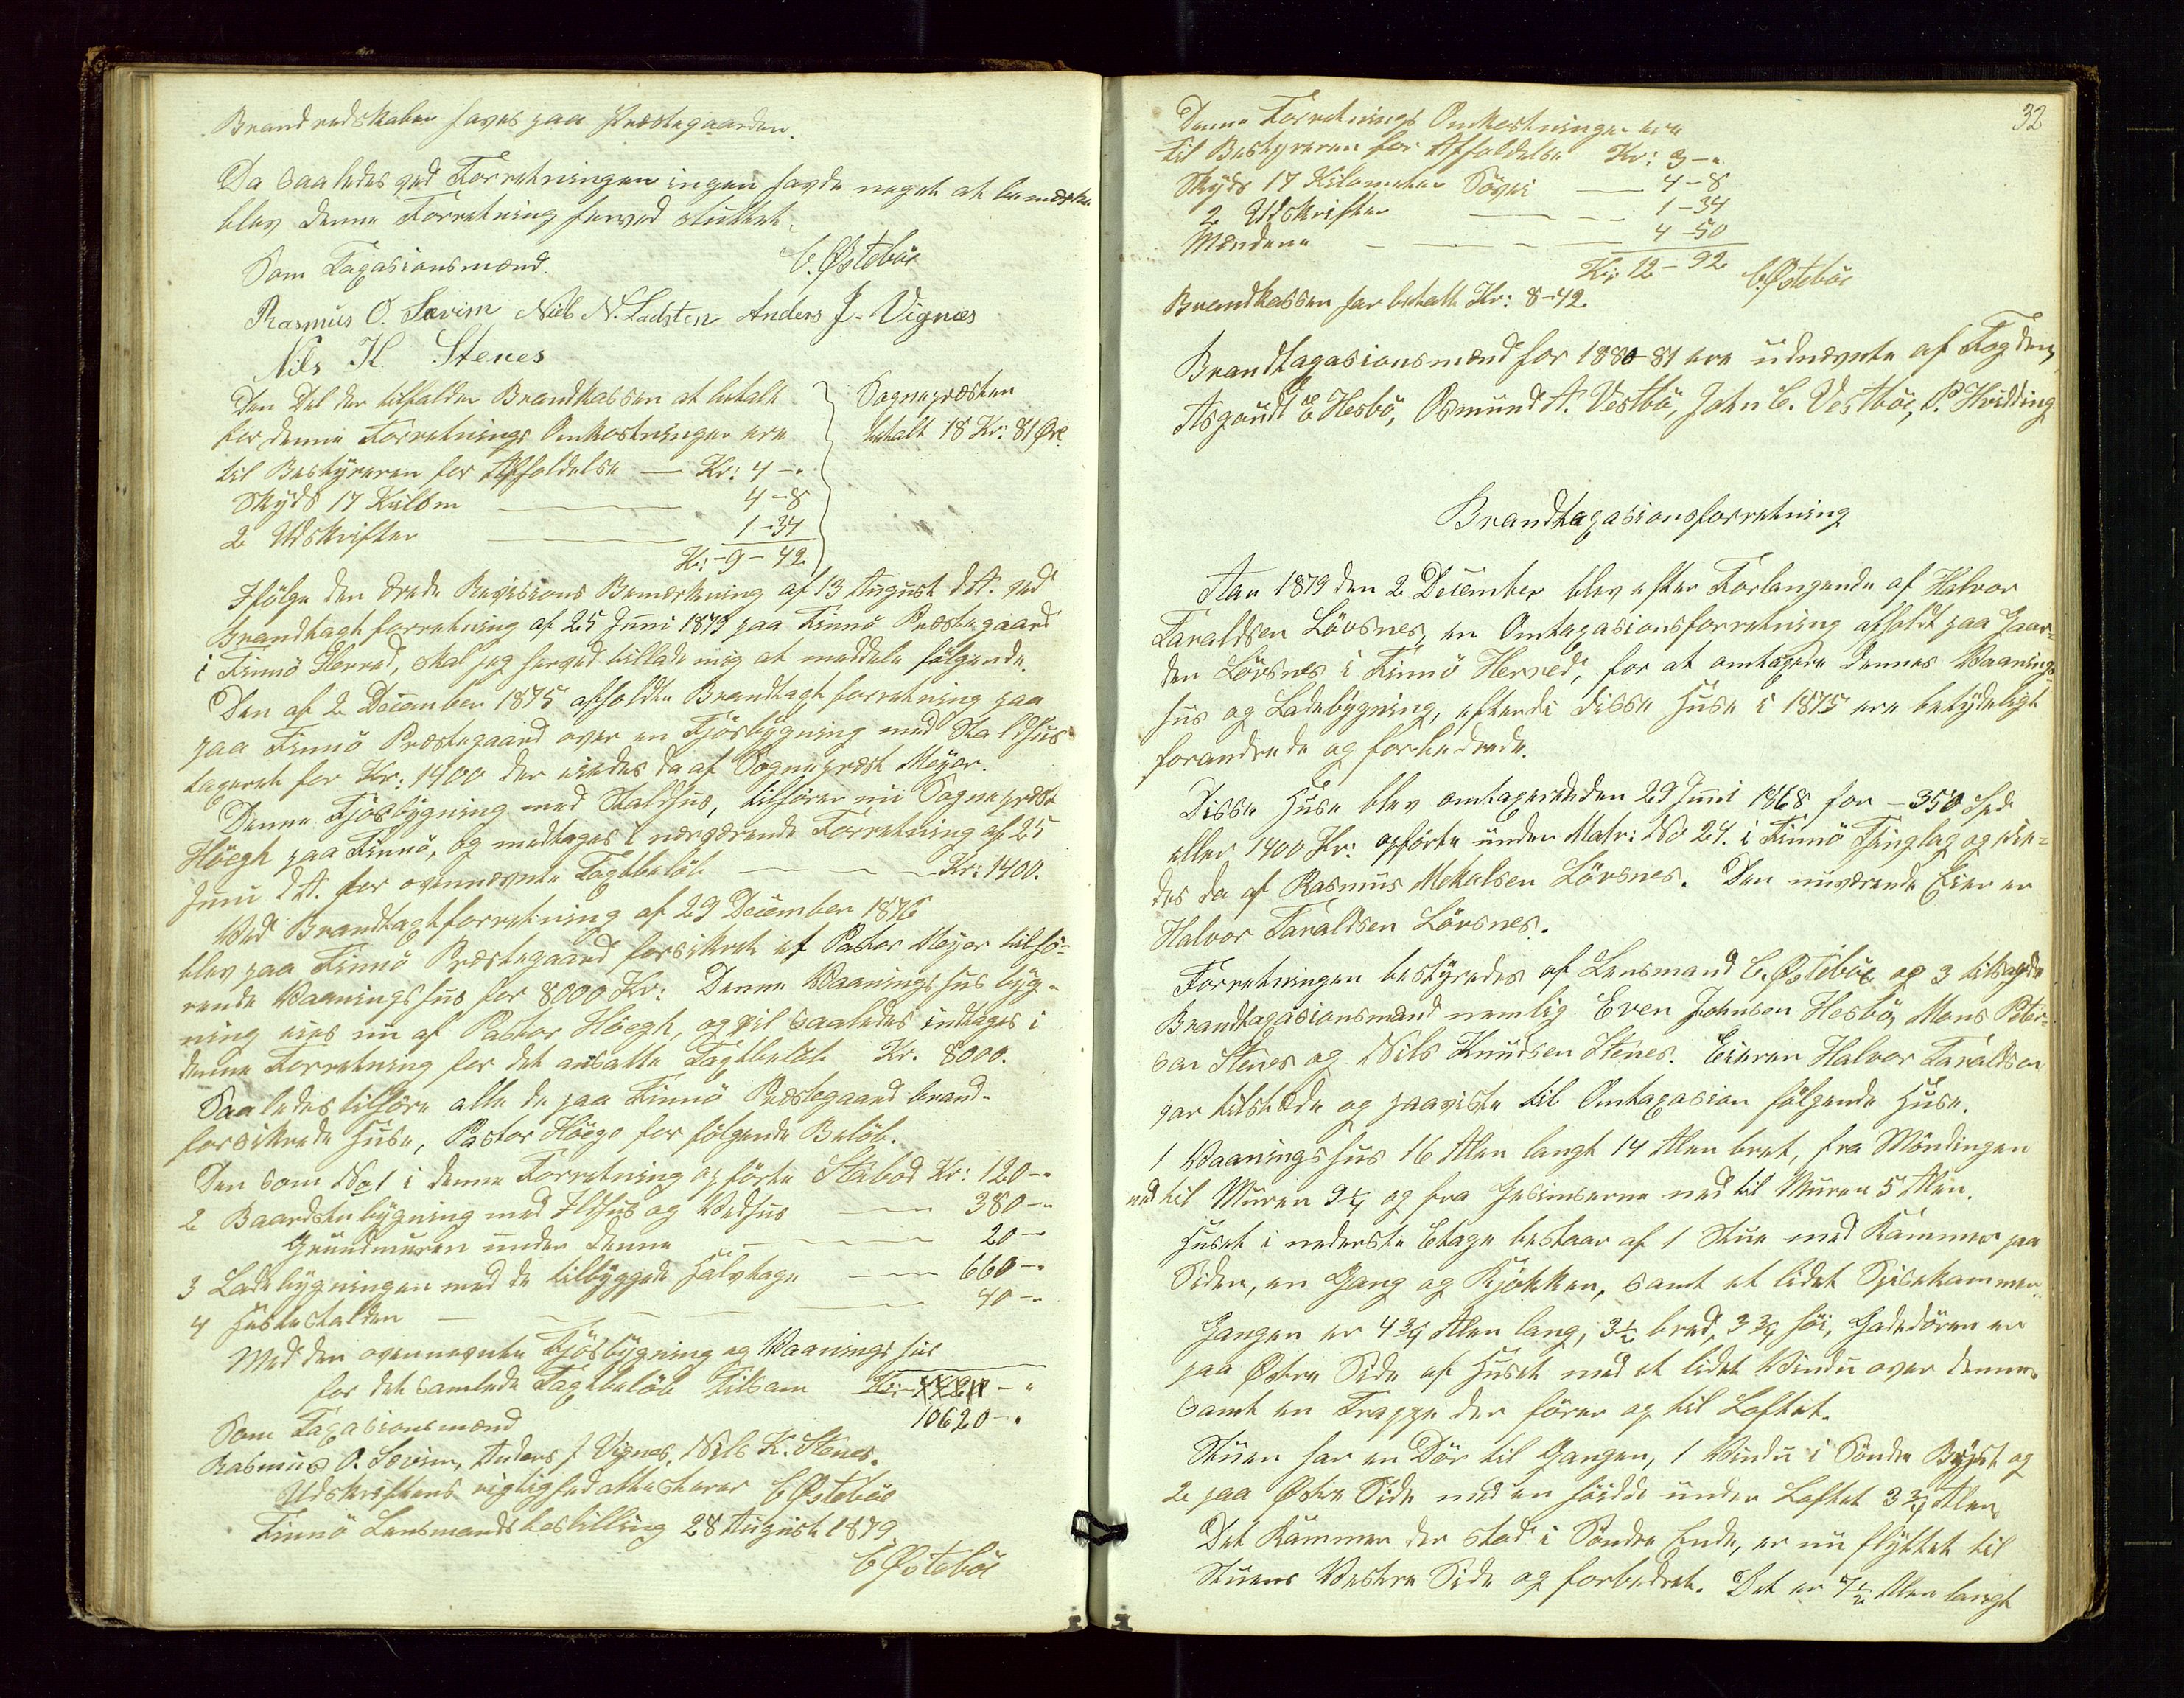 Brandredskaber haves paa Præstegaarden.
Da saaledes ved Forretningen ingen havde noget at bemærke
blev denne Forretning herved sluttet.
Som Taxasionsmænd. C. Østebøe
Rasmus O. Særim Niels N. Ladsten Anders J. Vignæs
Nils K Stenes
Den Del der tilfalder Brandkassen at betalt
for denne Forretnings Omkostninger ere
til Bestyreren for Affholdelse — Kr: 4 – "
Skyds 17 Kilom — 4 – 8
2 Udskrifter — 1 – 34
Kr: – 9 – 42
Sognepresten
betalt 18 Kr: 81 Øre
Ifölge den ærede Revisions Bemærkning af 13 August d. A. ved
Brandtaxtforretning af 25 Juni 1879 paa Finnö Præstegaard
i Finnö Herred, skal jeg herved tillade mig at meddele følgende.
Den af 2 December 1875 afholdte Brandtaxtforretning paa
paa Finnö Præstegaard over en Fjösbygning med Staldhus
taxeret for Kr: 1400 der eiedes da af Sogneprest Meyer.
Denne Fjösbygning med Staldhus, tilhörer nu Sogneprest
Höegh paa Finnö, og medtages i nærværende Forretning af 25
Juni d. A. for ovennævnte Taxtbelöb — — — Kr: 1400.
Ved Brandtaxtforretning af 29 December 1876
blev paa Finnö Præstegaard forsikret et Pastor Meyer tilhö-
rende Vaaningshus for 8000 Kr: Denne Vaaningshusbyg-
ning eies nu af Pastor Höegh, og vil saaledes indtages i
denne Forretning for det ansatte Taxtbelöb Kr. 8000.
Saaledes tilhöre alle de paa Finnö Præstegaard brand-
forsikrede Huse, Pastor Höegh for følgende Belöb.
Den som No 1 i denne Forretning opförte Stabod Kr: 120 – "
2 Baardstubygning med Ildhus og Vedhus — 380 – "
Grundmuren under denne — — — 20 –
3 Ladebygningen med de tilbyggede Halvtage — 660 – "
4 Hestestalden — — — 40 – "
Med den ovennævnte Fjösbygning og Vaaningshus
for det samlede Taxtbelöb tilsam Kr: – "
10620 – "
Som Taxasionsmænd
Rasmus O. Særim, Anders J Vignes, Nils K. Stenes.
Udskriftens rigtighed attesterer C Østebøe
Finnö Lensmandsbestilling 28 August 1879.
C Østebøe
32
Denne Forretnings Omkostninger ere
til Bestyreren for Affholdelse Kr: 3 – "
Skyds 17 Kilometer Sövei — 4 – 8
2 Udskrifter — — — 1 – 34
Mændene — — — 4 – 50
Kr: 12 – 92 C. Østebøe
Brandkassen har betalt Kr: 8 – 42
Brandtaxasionsmænd for 1880–81 ere udnævnte af Fogden,
Asgaut E Hesbö, Osmund A. Vestbö, John C. Vestbö, P. Hvidding
Brandtaxasionsforretning
Aar 1879 den 2 December blev efter Forlangende af Halvor
Taraldsen Lövsnes, en Omtaxasionsforretning afholdt paa Gaar-
den Lövsnes i Finnö Herred, for at omtaxere dennes Vaanings-
hus og Ladebygning, efterdi disse Huse i 1875 ere betydeligt
forandrede og forbedrede.
Disse Huse blev omtaxerede den 29 Juni 1868 for – 350 Spd
eller 1400 Kr: opförte under Matr: No 24. i Finnö Thinglag og eie-
des da af Rasmus Mekalsen Lövsnes. Den nuværende Eier er
Halvor Taraldsen Lövsnes.
Forretningen bestyredes af Lensmand C. Østebøe og 3 tilsagde
Brandtaxasionsmænd nemlig Even Johnsen Hesbö, Mons Peter-
sen Stenes og Nils Knudsen Stenes. Eieren Halvor Taraldsen
var tilstede og paaviste til Omtaxasion følgende Huse.
1 Vaaningshus 16 Alen langt 14 Alen bret, fra Möndingen
ned til Muren 9¼ og fra Gesimserne ned til Muren 5 Alen.
Huset i nederste Etage bestaar af 1 Stue med Kammer paa
Siden, en Gang og Kjökken, samt et lidet Spisekammer.
Gangen er 4¾ Alen lang, 3½ bred, 3¾ höi, Gadedören er
paa Östre Side af Huset med et lidet Vindu over denne
samt en Trappe der förer op til Loftet.
Stuen har en Dör til Gangen, 1 Vindu i Söndre Bryst og
2 paa Östre Side med en höide under Loftet 3¾ Alen.
Det Kammer der stod i Söndre Ende, er nu flyttet til
Stuens Vestre Side og forbedret. Det er 7½ Alen langt